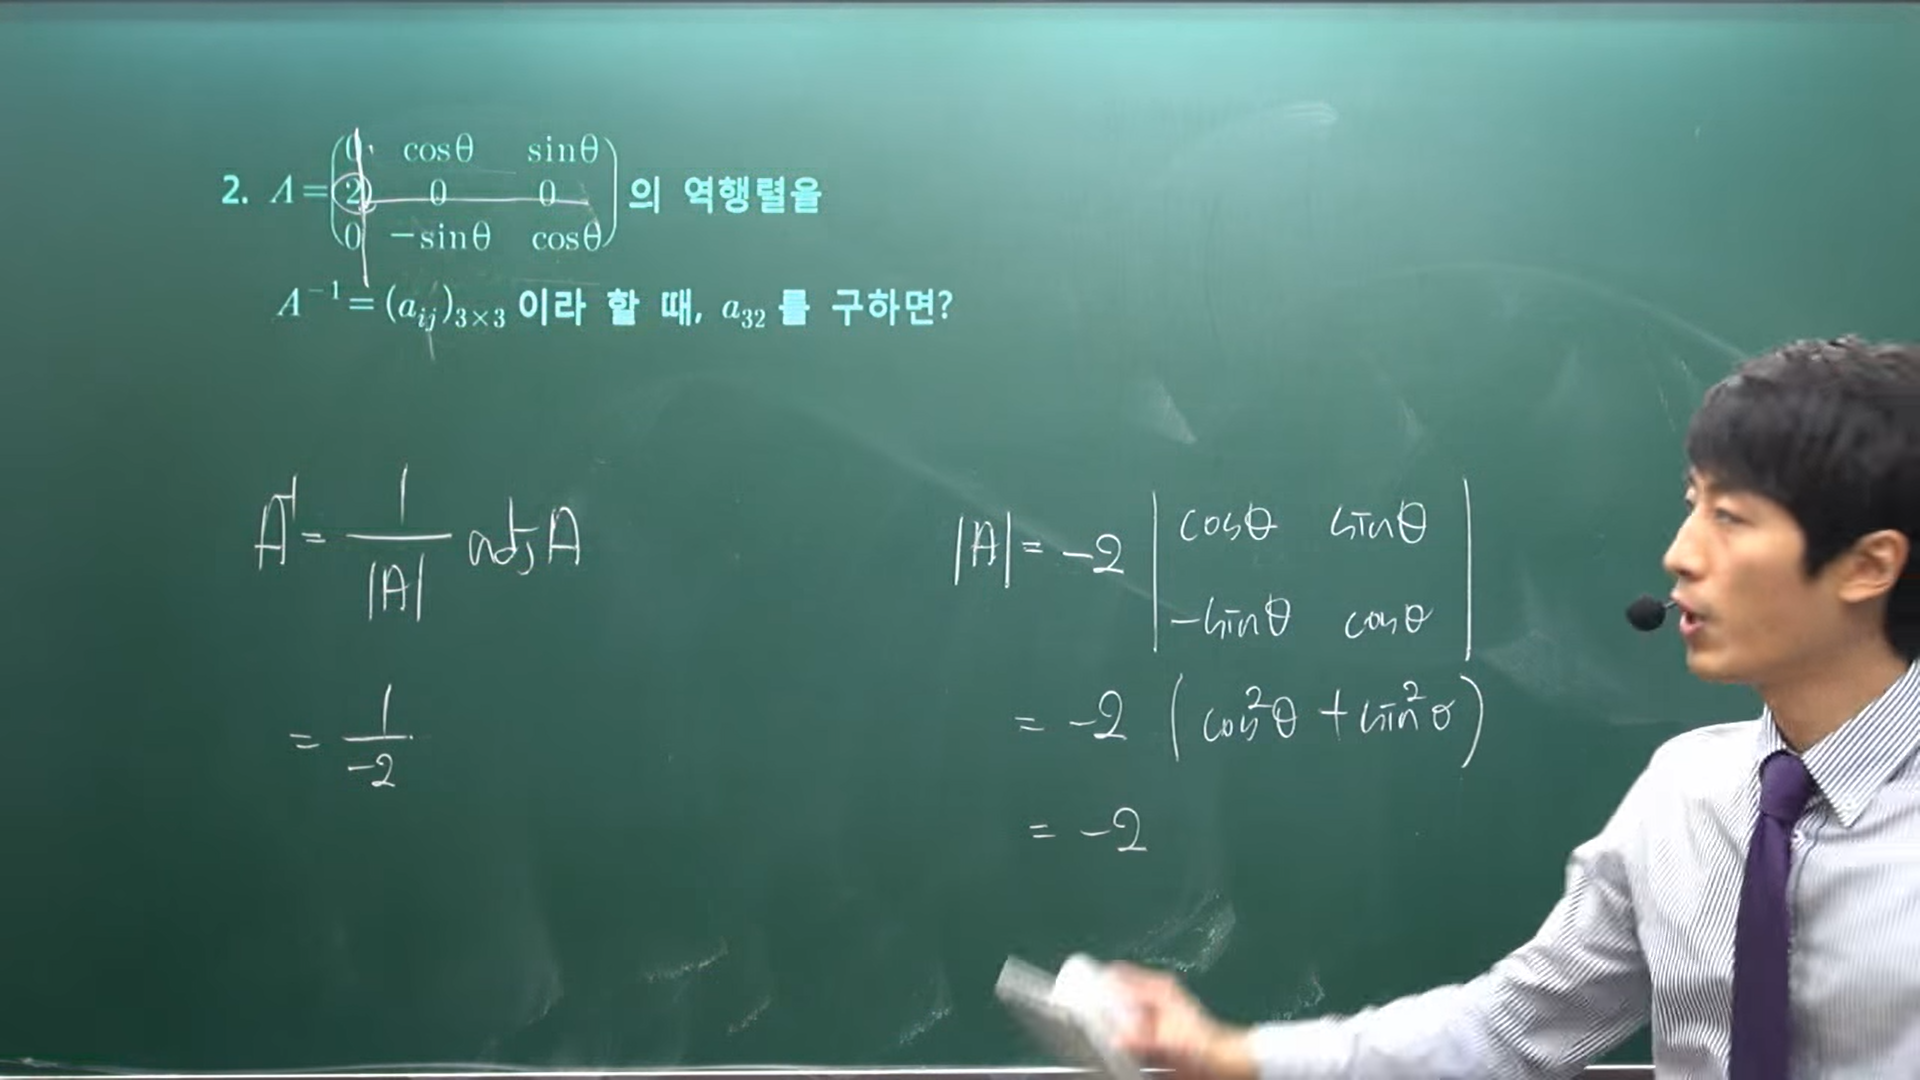 2. A = (0 cosθ sinθ
2 0 0
0 −sinθ cosθ) 의 역행렬을
A⁻¹ = (aᵢⱼ)₃ₓ₃ 이라 할 때, a₃₂ 를 구하면?
A⁻¹ = 1/|A| adj A
= 1/−2
|A| = −2 |cosθ sinθ
−sinθ cosθ|
= −2 (cos²θ + sin²θ)
= −2